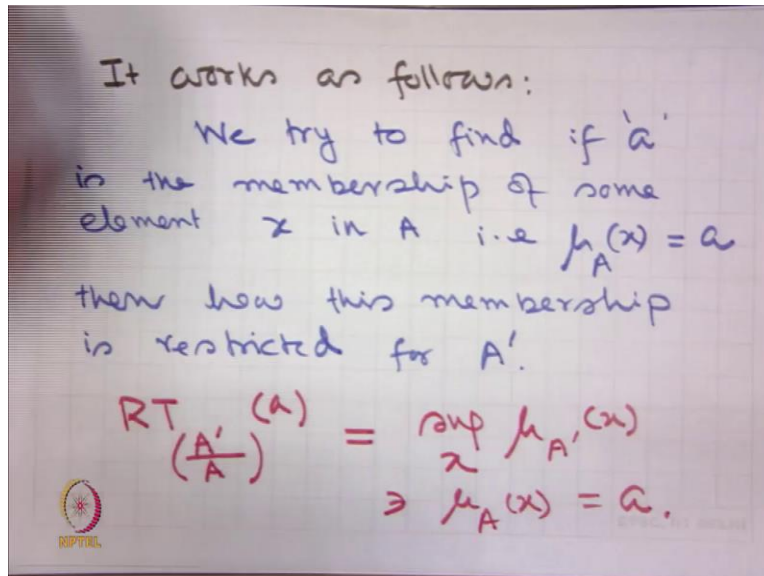 It works as follows:
We try to find if 'a'
is the membership of some
element x in A i.e μ_A(x) = a
then how this membership
is restricted for A'.
RT_(A'/A) (a) = sup_x μ_A'(x)
∋ μ_A(x) = a.
NPTEL